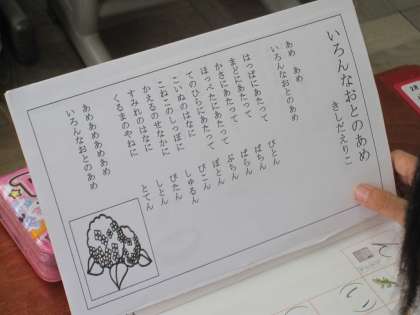 いろんなおとのあめ
きしだえりこ
あめ あめ
いろんなおとのあめ
はっぱにあたって ぴとん
まどにあたって ぱちん
かさにあたって ぱらん
ほっぺたにあたって ぷちん
てのひらにあたって ぽとん
こいぬのはなに ぴこん
こねこのしっぽに しゅるん
かえるのせなかに ぴたん
すみれのはなに しとん
くるまのやねに とてん
あめあめあめあめ
いろんなおとのあめ
28